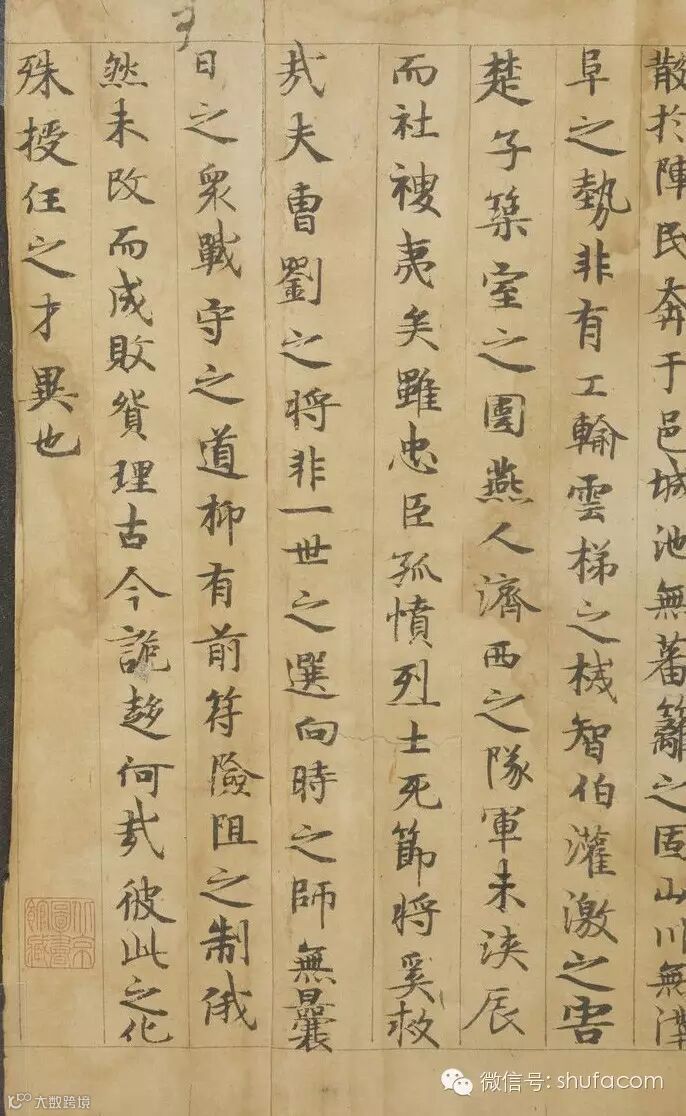 散於陣民奔于邑城池無蕃籬之固山川無溝
阜之勢非有工輸雲梯之械智伯灌激之害
楚子築室之圍燕人濟西之隊軍未浹辰
而社稷夷矣雖忠臣孤憤烈士死節將奚救
哉夫曹劉之將非一世之選向時之師無曩
日之衆戰守之道抑有前符險阻之制俄
然未改而成敗貿理古今詭趍何哉彼此之化
殊授任之才異也
北京圖書館藏
微信号: shufacom
大数跨境